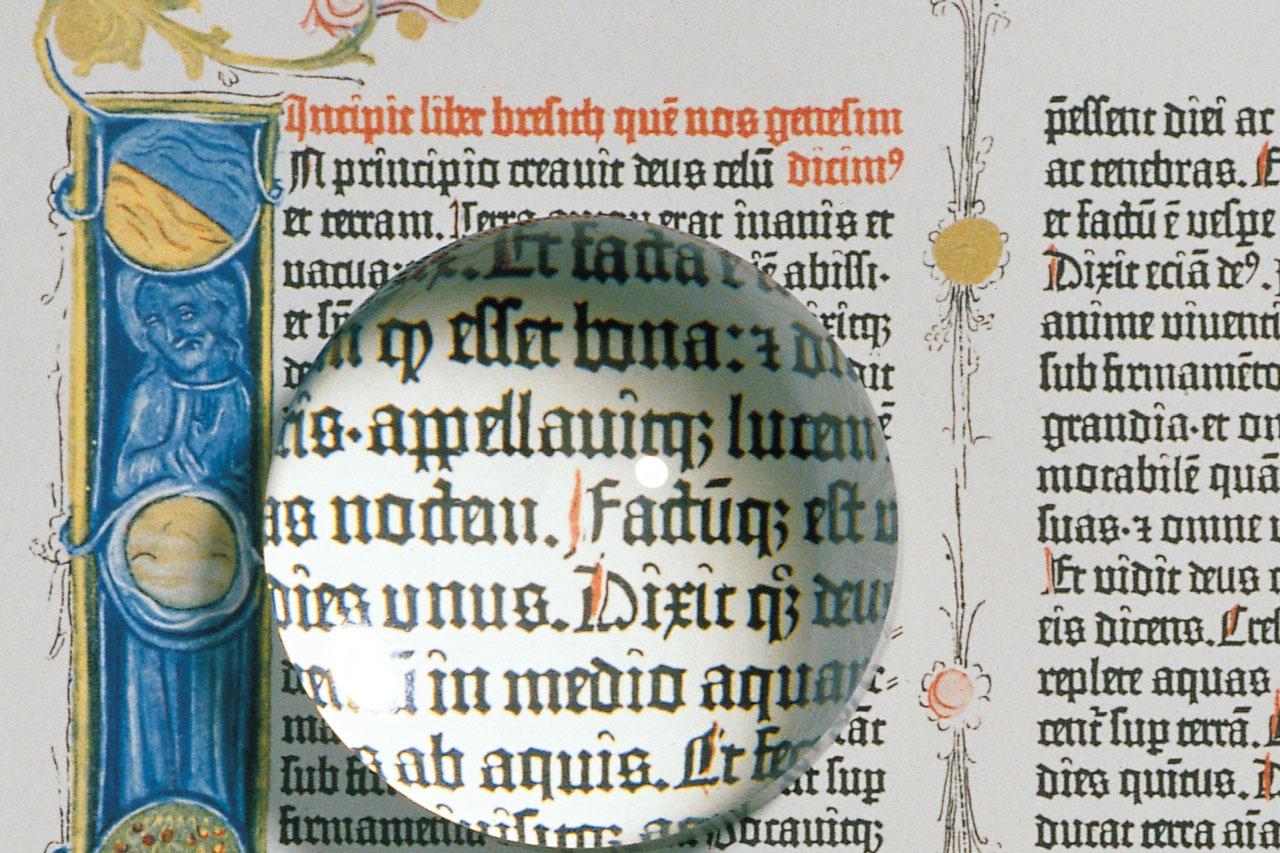 Incipit liber bresith quē nos genesim
N principio creauit deus celū dicimꝰ
et terram. Terra autem erat inanis et
uacua: abissi·
et
Et facta
ꝙ esset bona: ⁊
appellauitqꝫ lucem
as noctem. Factūqꝫ est
dies vnus. Dixit qꝫ deu
in medio aqua
ab aquis. Et fec
sub sup
vocauitqꝫ
p̄essent diei ac
ac tenebras.
et factū ē vespe
Dixit eciā deꝰ.
anime viuenti
sub firmamēto
grandia·et om
motabilē quā
suas·⁊ omne
Et vidit deus
eis dicens. Cre
replete aquas
cent̄ sup terrā.
dies quītus.
ducat terra aīa